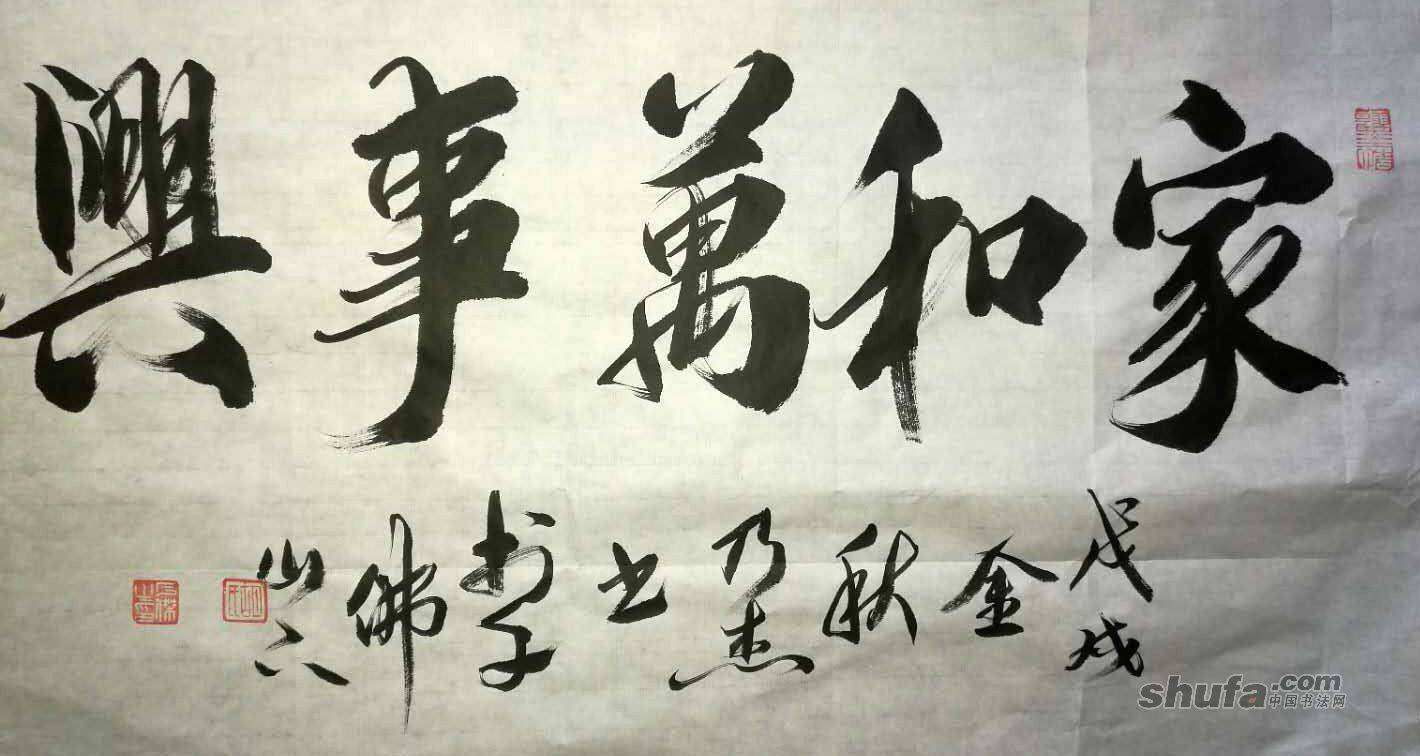 家和萬事興
戊戌金秋乃杰书於佛山
shufa.com
中国书法网